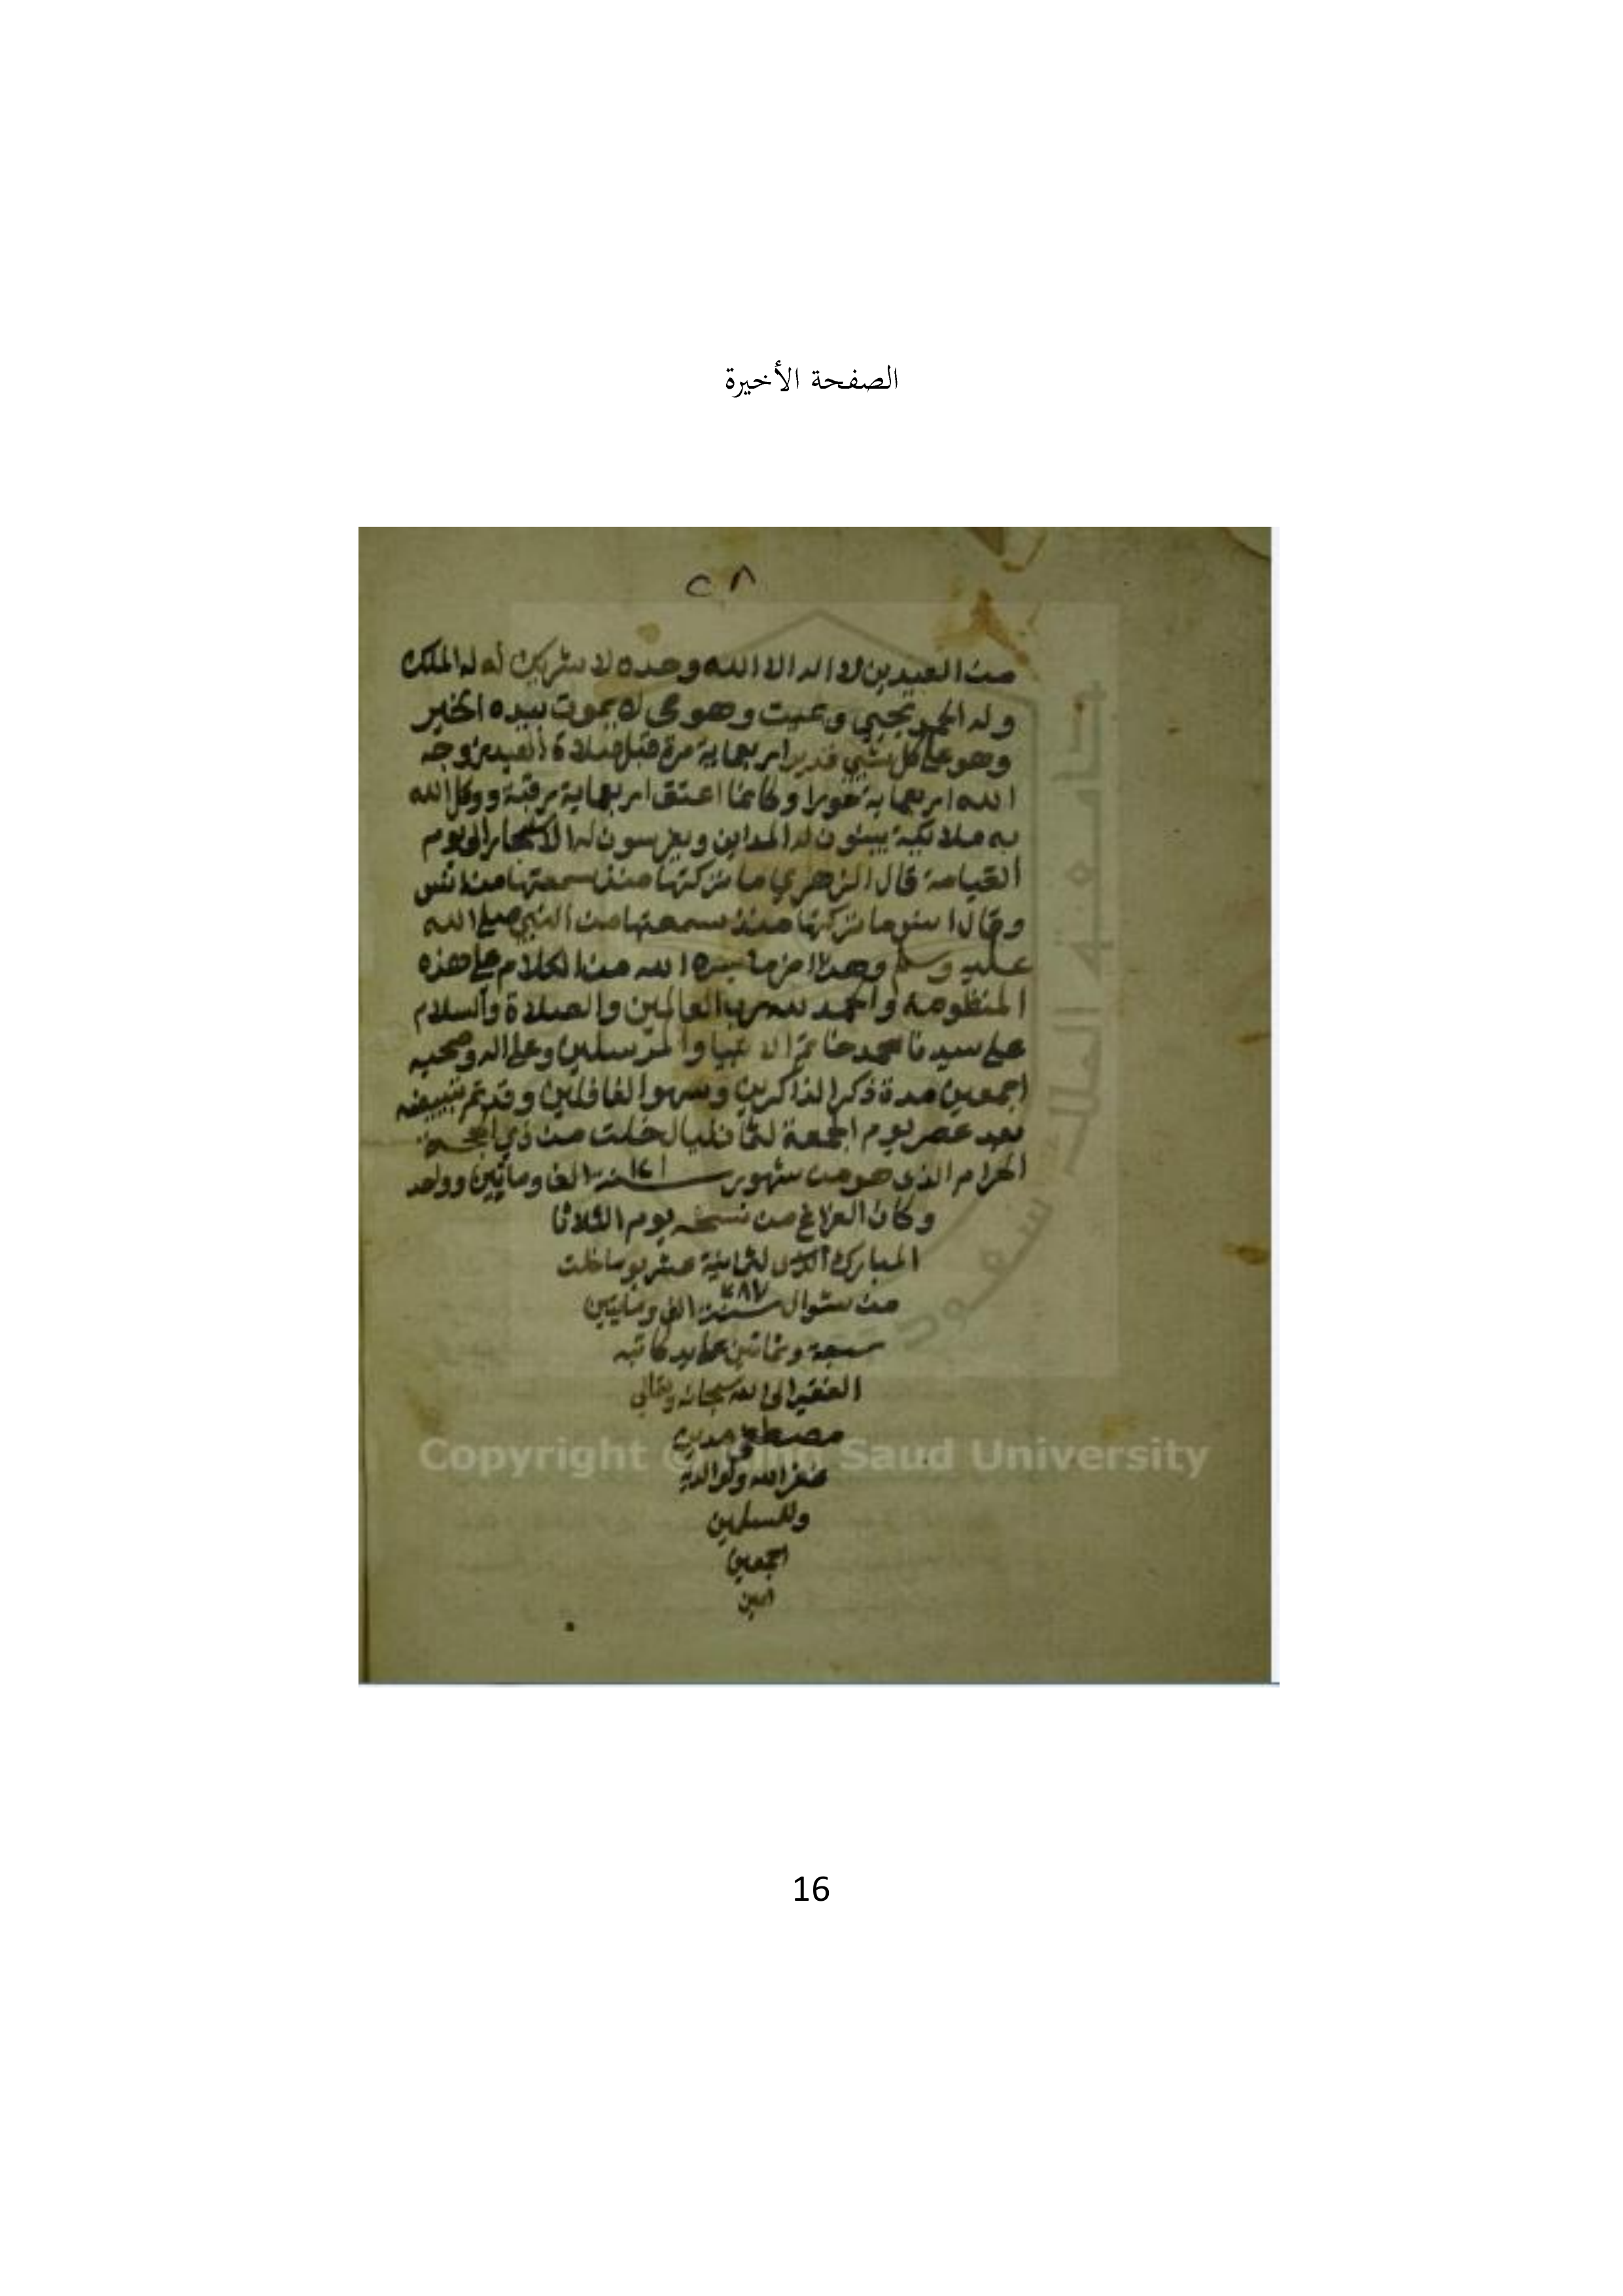 الصفحة الأخيرة
٢٨
من العيدين لا اله الا الله وحده لا شريك له له الملك
وله الحمد يحيي ويميت وهو حي لا يموت بيده الخير
وهو على كل شي قدير اربعماية مرة قبل صلاة العيد زوجه
الله اربعماية حورا وكانما اعتق اربعماية رقبة ووكل الله
به ملائكة يبنون له المداين ويغرسون له الاشجار الى يوم
القيامة قال الزهري ما تركتها منذ سمعتها من انس
وقال انس ما تركتها منذ سمعتها من النبي صلى الله
عليه وسلم وهذا اخر ما يسره الله من الكلام على هذه
المنظومة والحمد لله رب العالمين والصلاة والسلام
على سيدنا محمد خاتم الانبيا والمرسلين وعلى اله وصحبه
اجمعين مدة ذكر الذاكرين وسهو الغافلين وقد تم تبييضه
بعد عصر يوم الجمعة لثمان ليال خلت من ذي الحجة
الحرام الذي هو من شهور سنة الف ومائتين وواحد
وكان الفراغ من نسخه يوم الثلاثا
المبارك لثمانية عشر يوما خلت
من شوال سنة ١٢٨٧ الف ومايتين
سبعة وثمانين على يد كاتبه
الفقير الى الله سبحانه وتعالى
مصطفى مدين
غفر الله ولوالديه
وللمسلمين
اجمعين
امين
جامعة الملك سعود
Copyright © King Saud University
16